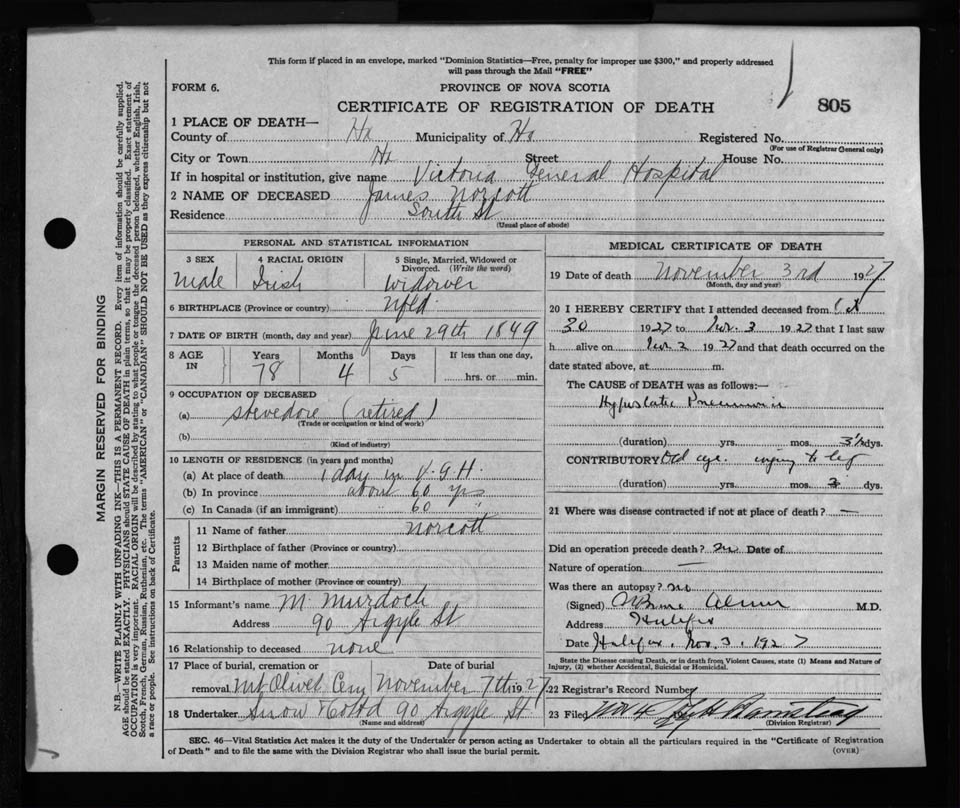 This form if placed in an envelope, marked "Dominion Statistics—Free, penalty for improper use $300," and properly addressed
will pass through the Mail "FREE"
FORM 6.
PROVINCE OF NOVA SCOTIA
CERTIFICATE OF REGISTRATION OF DEATH
805
1 PLACE OF DEATH—
County of Hx Municipality of Hx Registered No.
(For use of Registrar General only)
City or Town Hx Street House No.
If in hospital or institution, give name Victoria General Hospital
2 NAME OF DECEASED James Norcott
Residence South St
(Usual place of abode)
PERSONAL AND STATISTICAL INFORMATION
3 SEX
Male
4 RACIAL ORIGIN
Irish
5 Single, Married, Widowed or
Divorced. (Write the word)
Widower
6 BIRTHPLACE (Province or country) Nfld
7 DATE OF BIRTH (month, day and year) June 29th 1849
8 AGE
IN
Years
78
Months
4
Days
5
If less than one day,
hrs. or min.
9 OCCUPATION OF DECEASED
(a) Stevedore (retired)
(Trade or occupation or kind of work)
(b)
(Kind of industry)
10 LENGTH OF RESIDENCE (in years and months)
(a) At place of death 1 day in V.G.H.
(b) In province about 60 yrs
(c) In Canada (if an immigrant) " 60 "
Parents
11 Name of father Norcott
12 Birthplace of father (Province or country)
13 Maiden name of mother
14 Birthplace of mother (Province or country)
15 Informant's name M. Murdoch
Address 90 Argyle St
16 Relationship to deceased none
17 Place of burial, cremation or
removal Mt Olivet Cem
Date of burial
November 7th 1927
18 Undertaker Snow & Co Ltd 90 Argyle St
(Name and address)
MEDICAL CERTIFICATE OF DEATH
19 Date of death November 3rd 1927
(Month, day and year)
20 I HEREBY CERTIFY that I attended deceased from Oct
30 1927 to Nov. 3 1927 that I last saw
h alive on Nov. 2 1927 and that death occurred on the
date stated above, at m.
The CAUSE of DEATH was as follows:—
Hypostatic Pneumonia
(duration) yrs. mos. 3½ dys.
CONTRIBUTORY Old age. injury to leg
(duration) yrs. mos. 3 dys.
21 Where was disease contracted if not at place of death? —
Did an operation precede death? no Date of
Nature of operation —
Was there an autopsy? no
(Signed) M.D.
Address Halifax
Date Halifax, Nov. 3, 1927
State the Disease causing Death, or in death from Violent Causes, state (1) Means and Nature of
Injury, (2) whether Accidental, Suicidal or Homicidal.
22 Registrar's Record Number
23 Filed Nov 4
(Division Registrar)
SEC. 46—Vital Statistics Act makes it the duty of the Undertaker or person acting as Undertaker to obtain all the particulars required in the "Certificate of Registration
of Death" and to file the same with the Division Registrar who shall issue the burial permit.
(OVER)
MARGIN RESERVED FOR BINDING
N.B.—WRITE PLAINLY WITH UNFADING INK—THIS IS A PERMANENT RECORD. Every item of information should be carefully supplied.
AGE should be stated EXACTLY. PHYSICIANS should STATE CAUSE OF DEATH in plain terms, so that it may be properly classified. Exact statement of
OCCUPATION is very important. RACIAL ORIGIN will be described by stating to what people or tongue the deceased person belonged, whether English, Irish,
Scotch, French, German, Russian, Ruthenian, etc. The terms "AMERICAN" or "CANADIAN" SHOULD NOT BE USED as they express citizenship but not
a race or people. See instructions on back of Certificate.